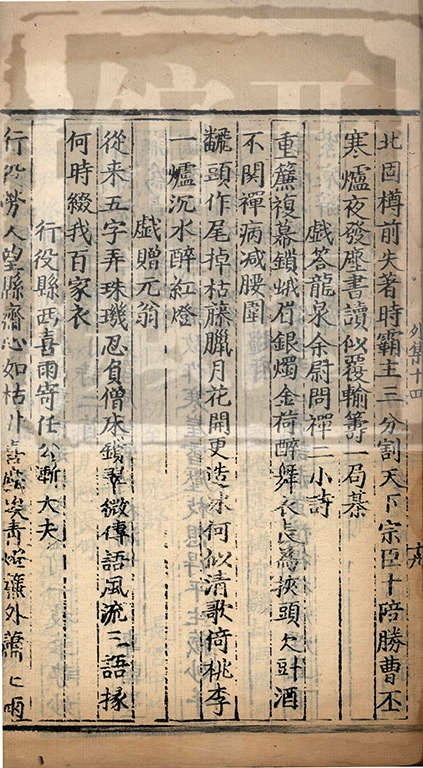 外集十四
北固樽前失著時霸主三分割天下宗臣十陪勝曹丕
寒爐夜發塵書讀似覆輸籌一局棊
戯答龍泉余尉問禪二小詩
重簾複幕鎖蛾眉銀燭金荷醉舞衣長爲挾頭欠㪷酒
不関禪病减腰圍
頭作尾掉枯藤臘月花開更造冰何似清歌倚桃李
一爐沉水醉紅燈
戯贈元翁
從来五字弄珠璣忍負僧床鎖翠微傳語風流三語掾
何時綴我百家衣
行役縣西喜雨寄任公漸大夫
行役勞人望縣齋心如枯井喜塵埃青燈簾外蕭〻雨